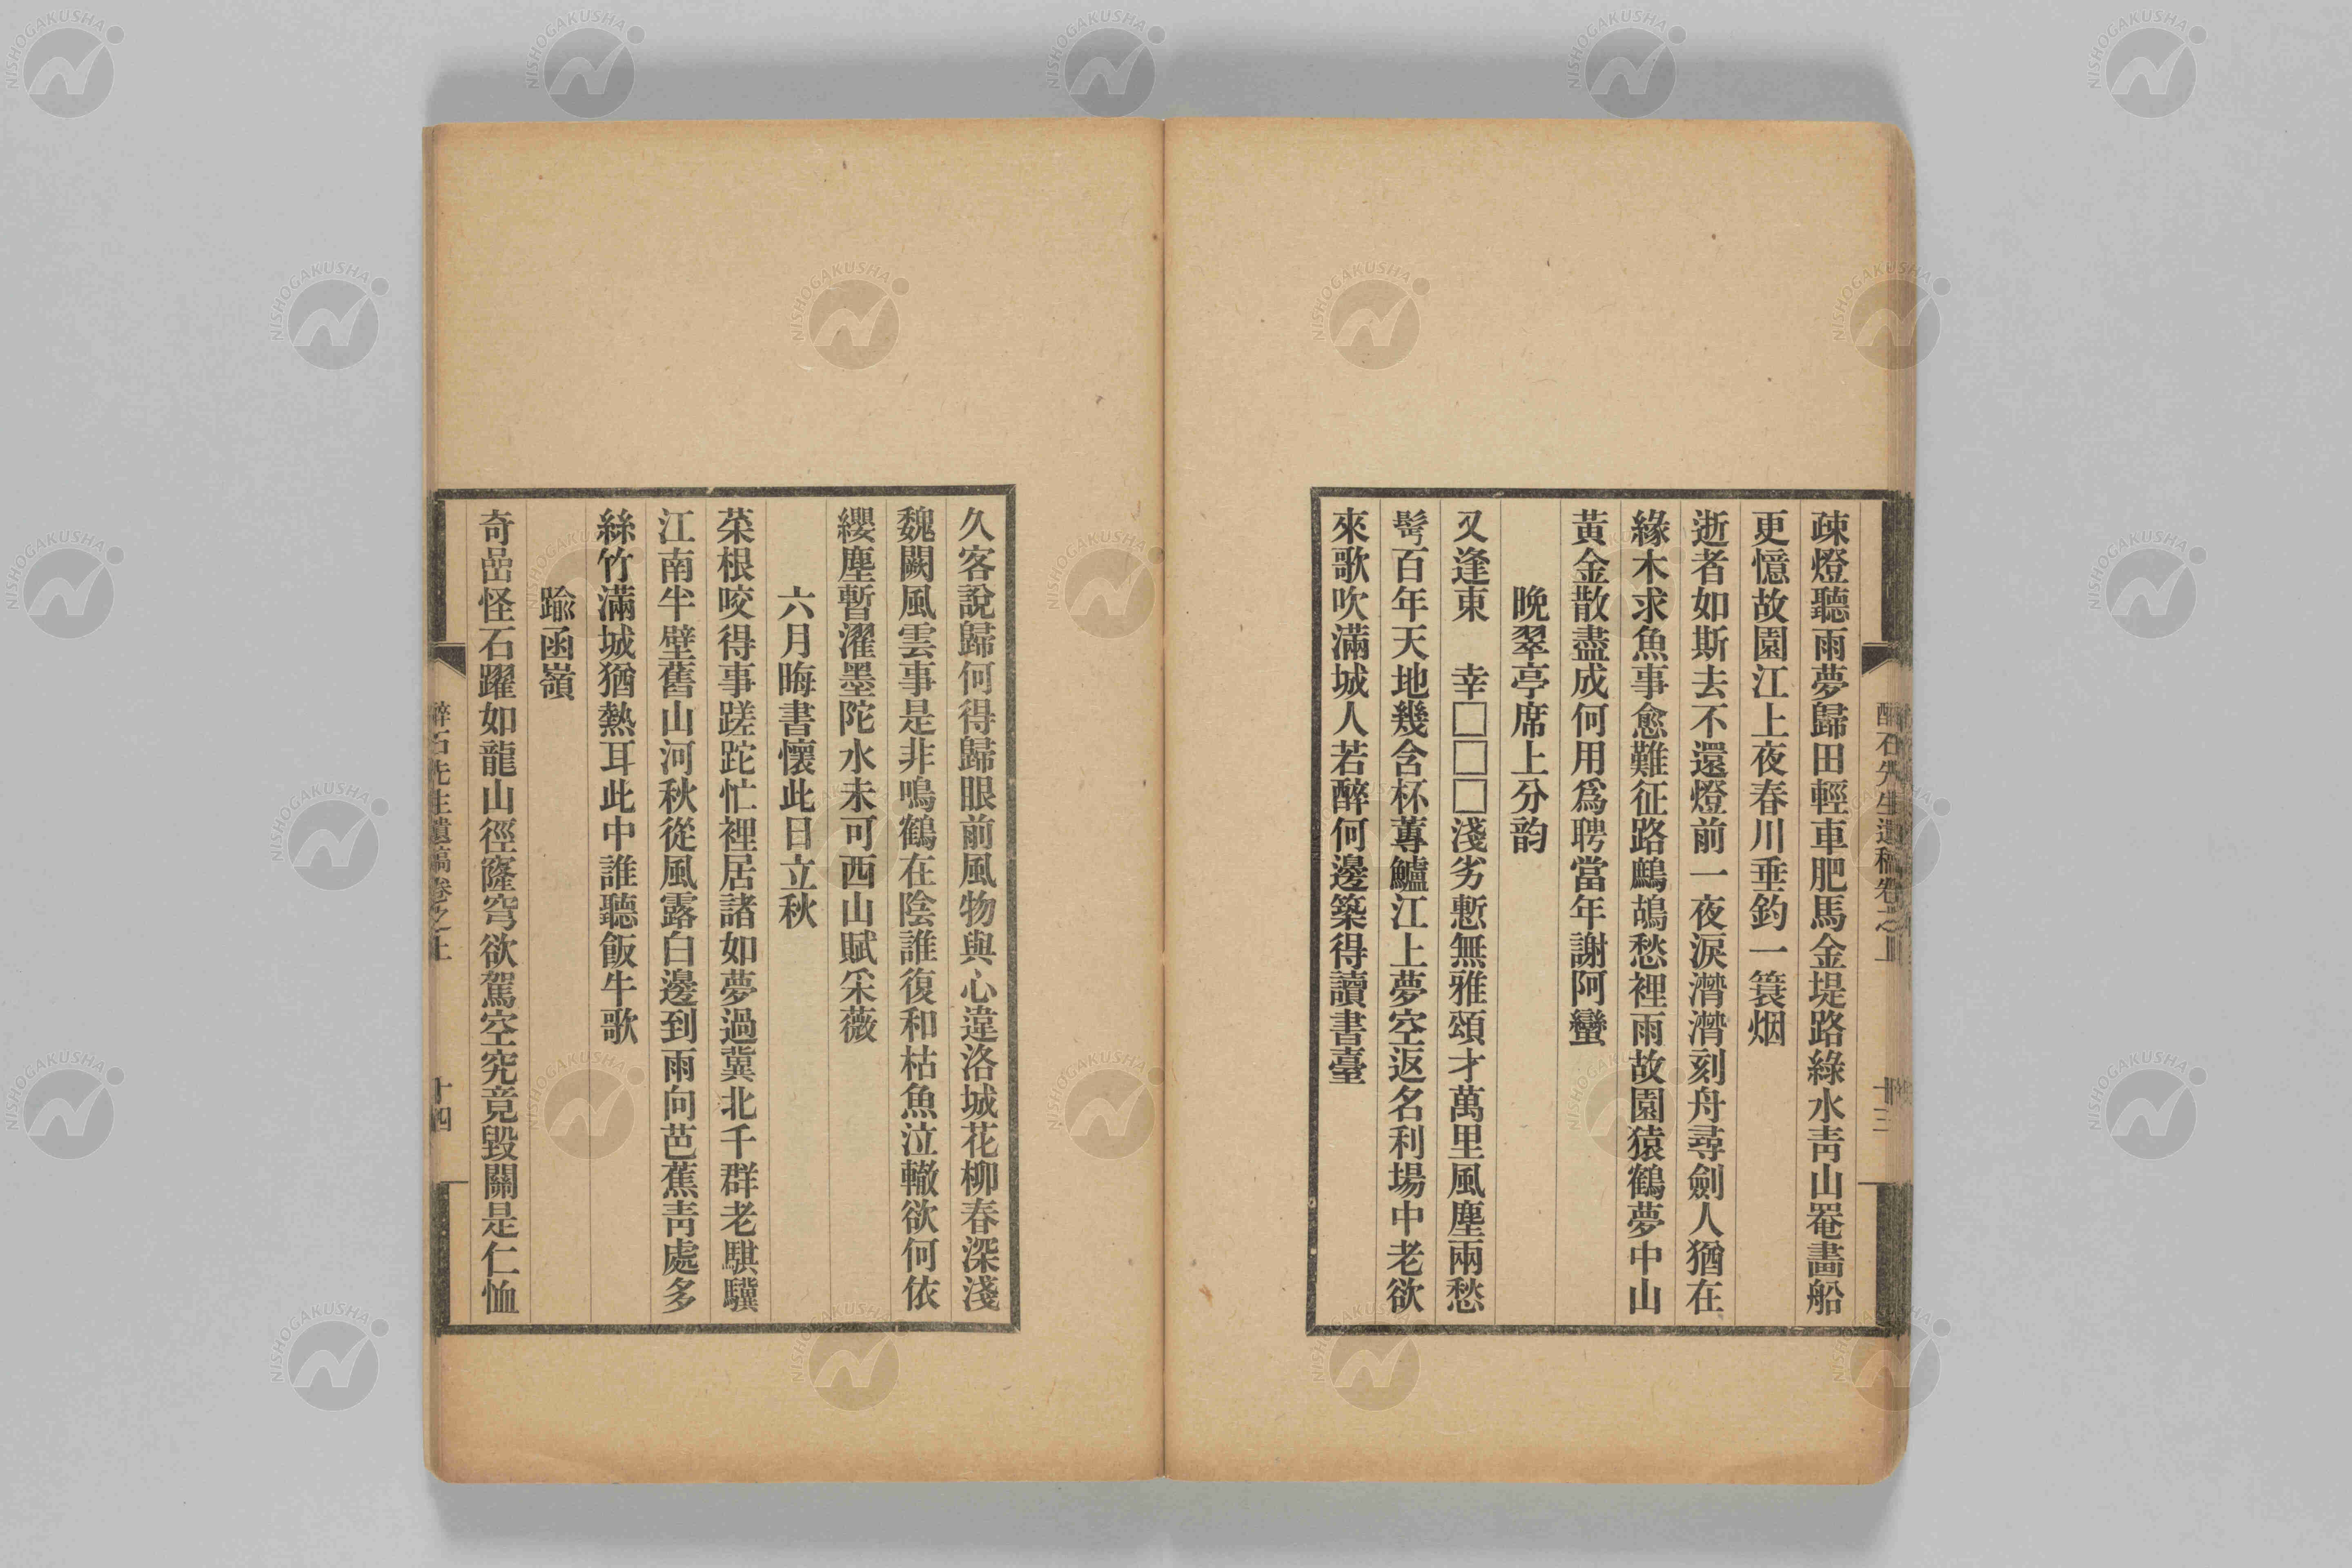 疎燈聽雨夢歸田輕車肥馬金堤路綠水靑山罨畵船
更憶故園江上夜春川垂釣一簑烟
逝者如斯去不還燈前一夜淚濳濳刻舟尋劍人猶在
緣木求魚事愈難征路鷓鴣愁裡雨故園猿鶴夢中山
黃金散盡成何用爲聘當年謝阿蠻
晩翠亭席上分韵
又逢東　幸□□□淺劣慙無雅頌才萬里風塵兩愁
鬢百年天地幾含杯蓴鱸江上夢空返名利場中老欲
來歌吹滿城人若醉何邊築得讀書臺
十三
久客說歸何得歸眼前風物與心違洛城花柳春深淺
魏闕風雲事是非鳴鶴在陰誰復和枯魚泣轍欲何依
纓塵暫濯墨陀水未可西山賦采薇
六月晦書懷此日立秋
菜根咬得事蹉跎忙裡居諸如夢過冀北千群老騏驥
江南半壁舊山河秋從風露白邊到雨向芭蕉靑處多
絲竹滿城猶熱耳此中誰聽飯牛歌
踰函嶺
奇嵒怪石躍如龍山徑窿穹欲駕空究竟毀關是仁恤
醉石先生遺稿卷之上
十四
NISHOGAKUSHA